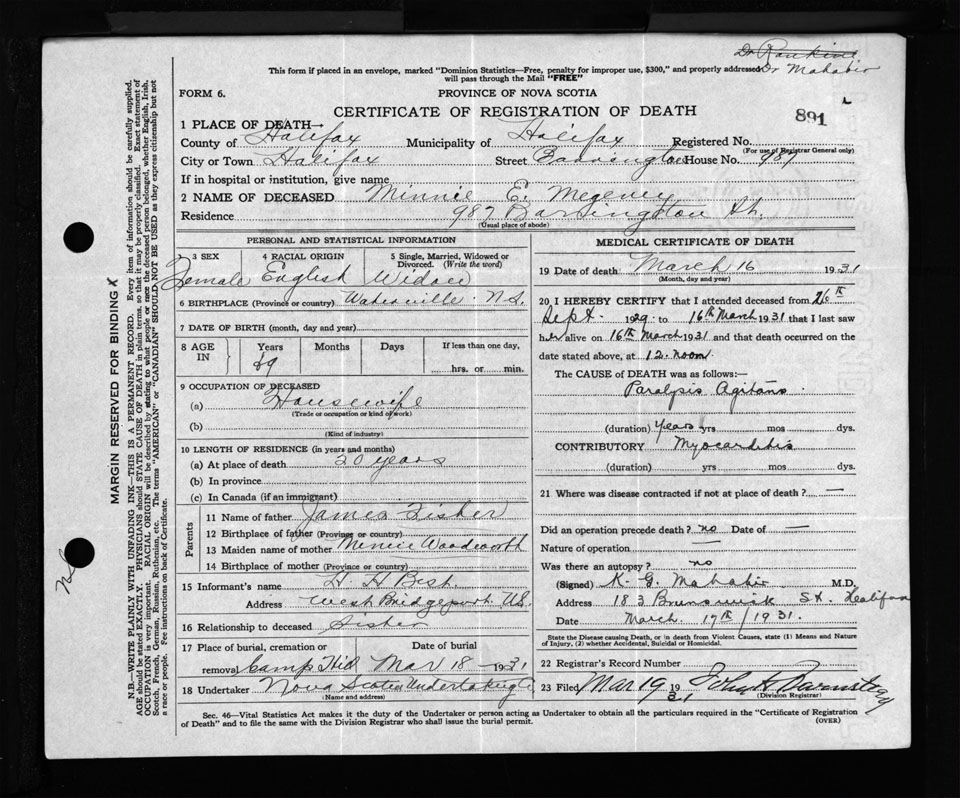 Dr Rankine
Dr Mahabir
This form if placed in an envelope, marked "Dominion Statistics—Free, penalty for improper use, $300," and properly addressed
will pass through the Mail "FREE"
FORM 6.
PROVINCE OF NOVA SCOTIA
CERTIFICATE OF REGISTRATION OF DEATH
891
1 PLACE OF DEATH—
County of Halifax Municipality of Halifax Registered No.
(For use of Registrar General only)
City or Town Halifax Street Barrington House No. 987
If in hospital or institution, give name
2 NAME OF DECEASED Minnie E. Megeney
Residence 987 Barrington St.
(Usual place of abode)
PERSONAL AND STATISTICAL INFORMATION
3 SEX 4 RACIAL ORIGIN 5 Single, Married, Widowed or Divorced. (Write the word)
Female English Widow
6 BIRTHPLACE (Province or country) Waterville N.S.
7 DATE OF BIRTH (month, day and year)
8 AGE IN Years Months Days If less than one day,
69 hrs. or min.
9 OCCUPATION OF DECEASED
(a) Housewife
(Trade or occupation or kind of work)
(b)
(Kind of industry)
10 LENGTH OF RESIDENCE (in years and months)
(a) At place of death 20 years
(b) In province
(c) In Canada (if an immigrant)
Parents
11 Name of father James Fisher
12 Birthplace of father (Province or country)
13 Maiden name of mother Minnie Woodworth
14 Birthplace of mother (Province or country)
15 Informant's name H. H Best
Address West Bridgeport. U.S.
16 Relationship to deceased Sister
17 Place of burial, cremation or removal Date of burial
Camp Hill Mar 18 1931
18 Undertaker Nova Scotia Undertaking Co
(Name and address)
MEDICAL CERTIFICATE OF DEATH
19 Date of death March 16 1931
(Month, day and year)
20 I HEREBY CERTIFY that I attended deceased from 26th
Sept. 1929 to 16th March 1931 that I last saw
her alive on 16th March 1931 and that death occurred on the
date stated above, at 12. noon.
The CAUSE of DEATH was as follows:—
Paralysis Agitans.
(duration) years yrs mos dys.
CONTRIBUTORY Myocarditis
(duration) yrs mos dys.
21 Where was disease contracted if not at place of death? —
Did an operation precede death? no Date of —
Nature of operation —
Was there an autopsy? no
(Signed) K. G. Mahabir M.D.
Address 183 Brunswick St. Halifax
Date March 17th / 1931.
State the Disease causing Death, or in death from Violent Causes, state (1) Means and Nature
of Injury, (2) whether Accidental, Suicidal or Homicidal.
22 Registrar's Record Number
23 Filed Mar 19 1931 John H
(Division Registrar)
Sec. 46—Vital Statistics Act makes it the duty of the Undertaker or person acting as Undertaker to obtain all the particulars required in the "Certificate of Registration
of Death" and to file the same with the Division Registrar who shall issue the burial permit.
(OVER)
MARGIN RESERVED FOR BINDING
N.B.—WRITE PLAINLY WITH UNFADING INK—THIS IS A PERMANENT RECORD. Every item of information should be carefully supplied.
AGE should be stated EXACTLY. PHYSICIANS should STATE CAUSE OF DEATH in plain terms, so that it may be properly classified. Exact statement of
OCCUPATION is very important. RACIAL ORIGIN will be described by stating to what people or race the deceased person belonged, whether English, Irish,
Scotch, French, German, Russian, Ruthenian, etc. The terms "AMERICAN" or "CANADIAN" SHOULD NOT BE USED as they express citizenship but not
a race or people. Fee instructions on back of Certificate.